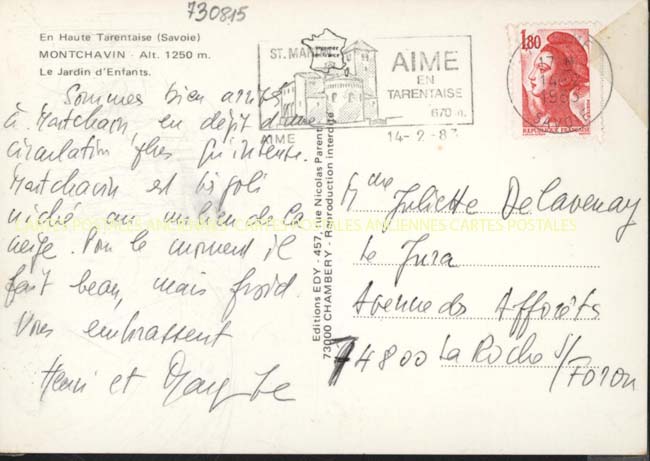 730815
En Haute Tarentaise (Savoie)
MONTCHAVIN - Alt. 1250 m.
Le Jardin d'Enfants.
ST. MAR
AIME
EN
TARENTAISE
670 m.
AIME
14-2-83
1,80
REPUBLIQUE FRANÇAISE
Sommes bien arrivés
à Montchavin, en dépit d'une
circulation plus qu'intense.
Montchavin est si joli
niché au milieu de la
neige. Pour le moment il
fait beau, mais froid.
Vous embrassent
Henri et
Editions EDY - 457, rue Nicolas Parent
73000 CHAMBERY - Reproduction interdite
Mme Juliette Delavenay
Le Jura
Avenue des Afforêts
74800 La Roche s/
Foron
CARTES POSTALES ANCIENNES CARTES POSTALES ANCIENNES CARTES POSTALES